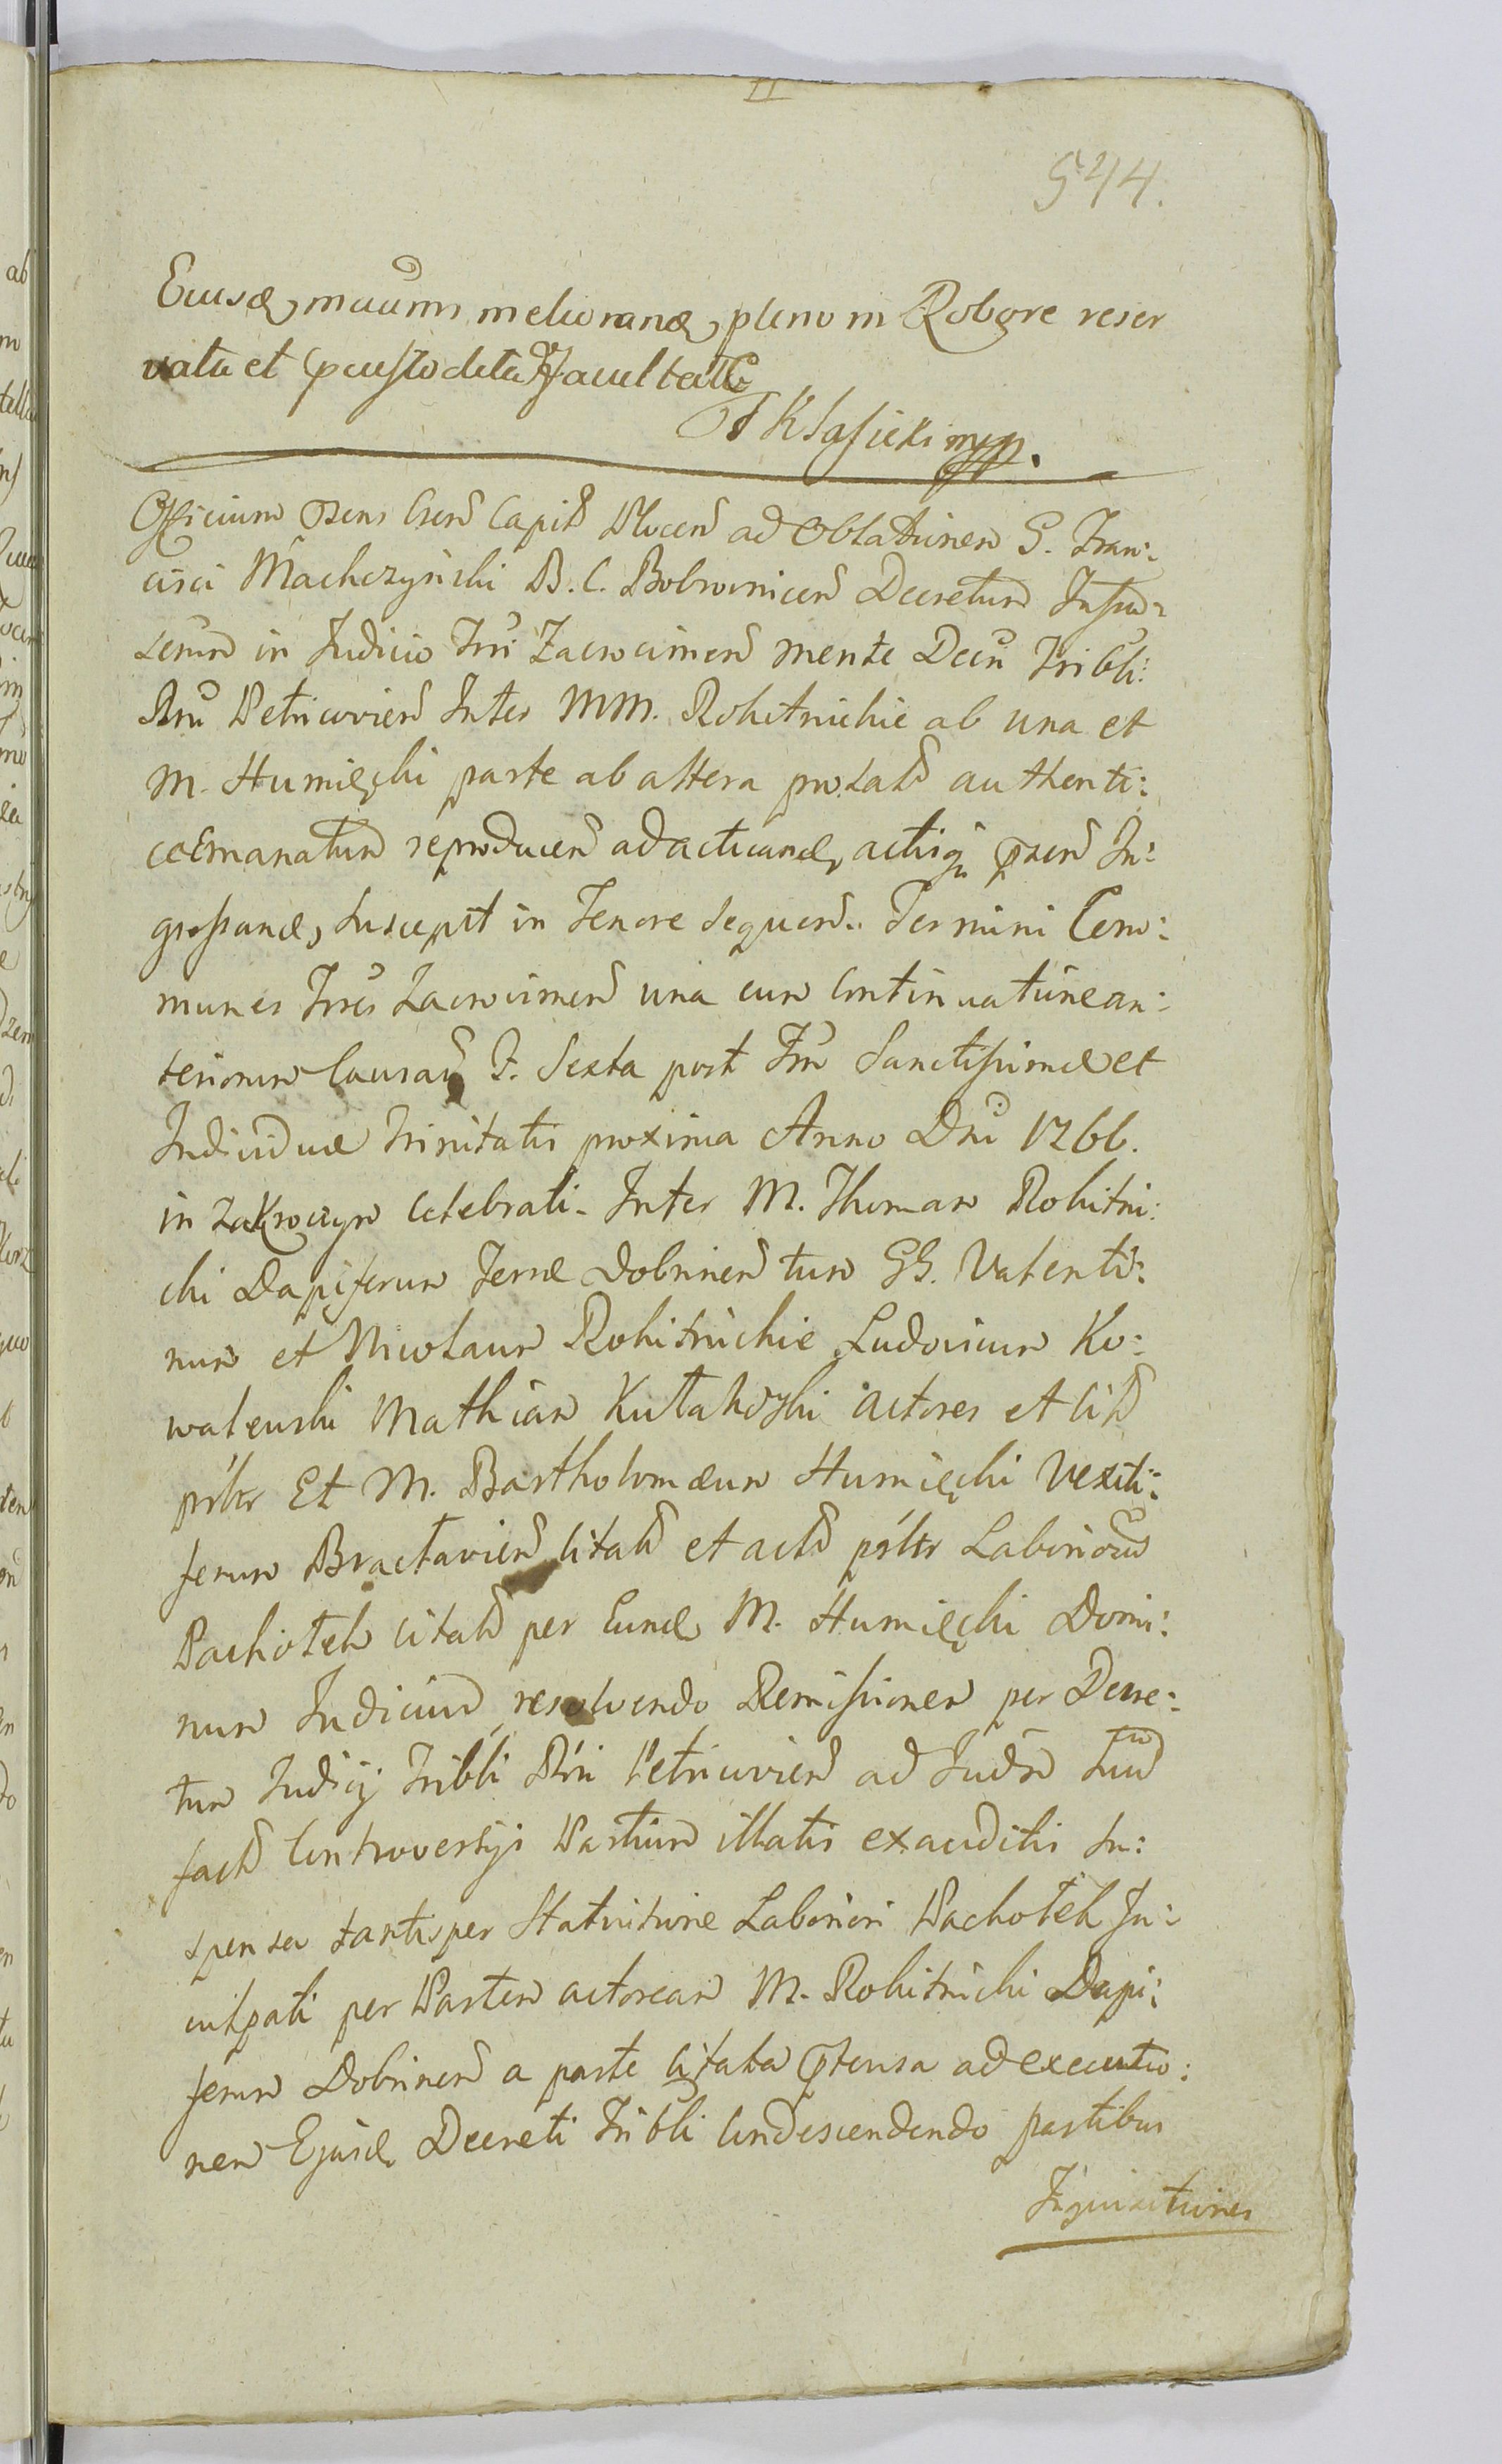 II
544.
Eiusd, mauum meliorand, pleno in Robore reser
vata et pcustodita facultate
T Klasicki mpp.
Officium Psens Csen Capit Plocen ad Oblationem G. Fran:
cisci Machczyński B. C. Bobrownicen Decretum Infra:
scrum in Judicio Tri Zacrocimen mente Decti Tribli:
Rni Petricovien Inter MM. Rokitnickie ab una et
M. Humięcki parte ab altera prolat authenti:
ce Emanatum reproducen ad acticand, actisq psen In:
grossand, suscepit in Tenore sequen. Termini Com:
munes Trres Zacrocimen una cum Continuatione an:
teriorum Causaru F. Sexta post Fm Sanctissimæ et
Individuæ Trinitatis proxima Anno Dni 1766.
in Zakroczym celebrati. Inter M. Thomam Rokitni:
cki Dapiferum Terræ Dobrinen tum GG. Valenti:
num et Nicolaum Rokitnickie Ludovicum Ko:
walewski Mathiam Kutakowski actores et Cit
pslr Et M. Bartholomæum Humięcki Vexili:
ferum Bractavien Citat et act pslr Laboriosum
Pachołek citat per Eund M. Humięcki Domi:
num Judicium resolvendo Remissionem per Decre:
tum Judicij Tribli Rni Petricovien ad Judm Suu
fact Controversijs Partium illatis exauditis su:
spensa tantisper Statuitione Laboriosi Pachołek In:
culpati per Partem actoream M. Rokitnicki Dapi:
ferum Dobrinen a parte Citata ptensa ad executio:
nem Ejusd, Decreti Tribli Condescendendo partibus
Inquisitiones